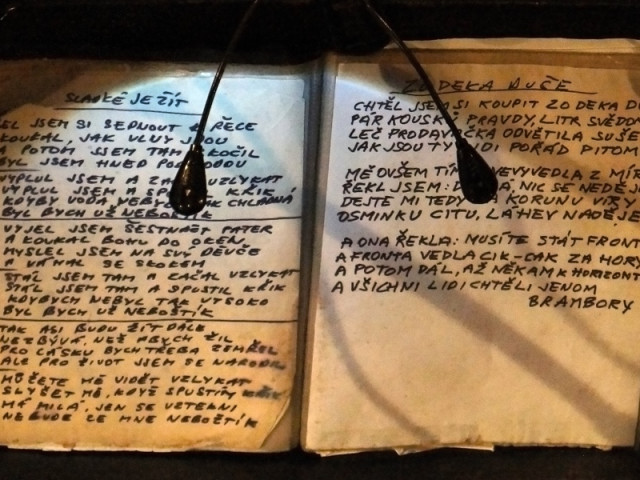 SLADKÉ JE ŽÍT
ŠEL JSEM SI SEDNOUT K ŘECE
KOUKAL, JAK VLNY JDOU
A POTOM JSEM TAM SKOČIL
BYL JSEM HNED POD VODOU
VYPLUL JSEM A ZAČAL VZLYKAT
VYPLUL JSEM A SPUSTIL KŘIK
KDYBY VODA NEBYLA TAK CHLADNÁ
BYL BYCH UŽ NEBOŽTÍK
VYJEL JSEM ŠESTNÁCT PATER
A KOUKAL BOHU DO OKEN
MYSLEL JSEM NA SVÝ DĚVČE
A VÁHAL SE SKOKEM
STÁL JSEM TAM A ZAČAL VZLYKAT
STÁL JSEM TAM A SPOSTIL KŘIK
KDYBYCH NEBYL TAK VYSOKO
BYL BYCH UŽ NEBOŠTÍK
TAK ASI BUDU ŽÍT DÁLE
NEZBÝVÁ, NEŽ ABYCH ŽIL
PRO LÁSKU BYCH TŘEBA ZEMŘEL
ALE PRO ŽIVOT JSEM SE NARODIL
MŮŽETE MĚ VIDĚT VZLYKAT
SLYŠET MĚ, KDYŽ SPUSTÍM KŘIK
MÁ MILÁ, JEN SE VZTEKNI
NEBUDE ZE MNE NEBOŽTÍK
ZO DEKA DUČE
CHTĚL JSEM SI KOUPIT ZO DEKA D
PÁR KOUSKŮ PRAVDY, LITR SVĚDOM
LEČ PRODAVAČKA ODVĚTILA SUŠE
JAK JSOU TY LIDI POŘÁD PITOM
MĚ OVŠEM TÍM NEVYVEDLA Z MÍR
ŘEKL JSEM: DOBRÁ, NIC SE NEDĚJ
DEJTE MI TEDY ZA KORUNU VÍRY
OSMINKU CITU, LÁHEV NADĚJE
A ONA ŘEKLA: MUSÍTE STÁT FRONT
A FRONTA VEDLA CIK-CAK ZA HORY
A POTOM DÁL, AŽ NĚKAM K HORIZONT
A VŠICHNI LIDI CHTĚLI JENOM
BRAMBORY